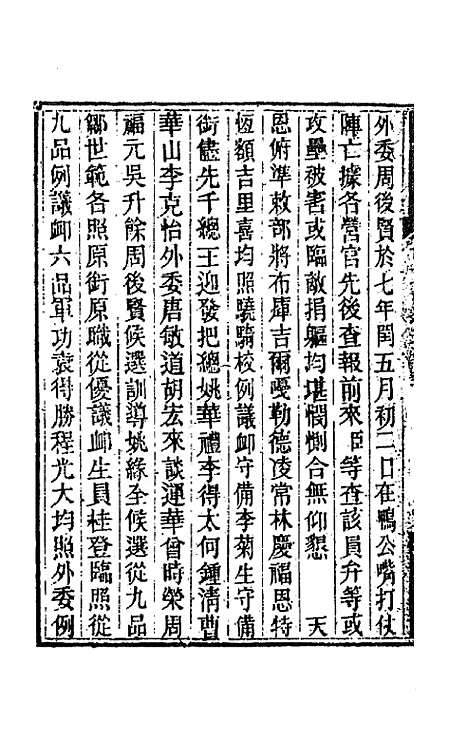 外委周後賢於七年閏五月初二日在鴨公嘴打仗
陣亡據各營官先後查報前來臣等查該員弁等或
攻壘被害或臨敵捐軀均堪憫惻合無仰懇 天
恩俯準敕部將布庫吉爾嘎勒德凌常林慶福恩特
恆額吉里喜均照驍騎校例議卹守備李菊生守備
銜儘先千總王迎發把總姚華禮李得太何鍾清曹
華山李克怡外委唐敏道胡宏來談運華曾時榮周
福元吳升餘周後賢候選訓導姚緣全候選從九品
鄒世範各照原銜原職從優議卹生員桂登臨照從
九品例議卹六品軍功袁得勝程光大均照外委例